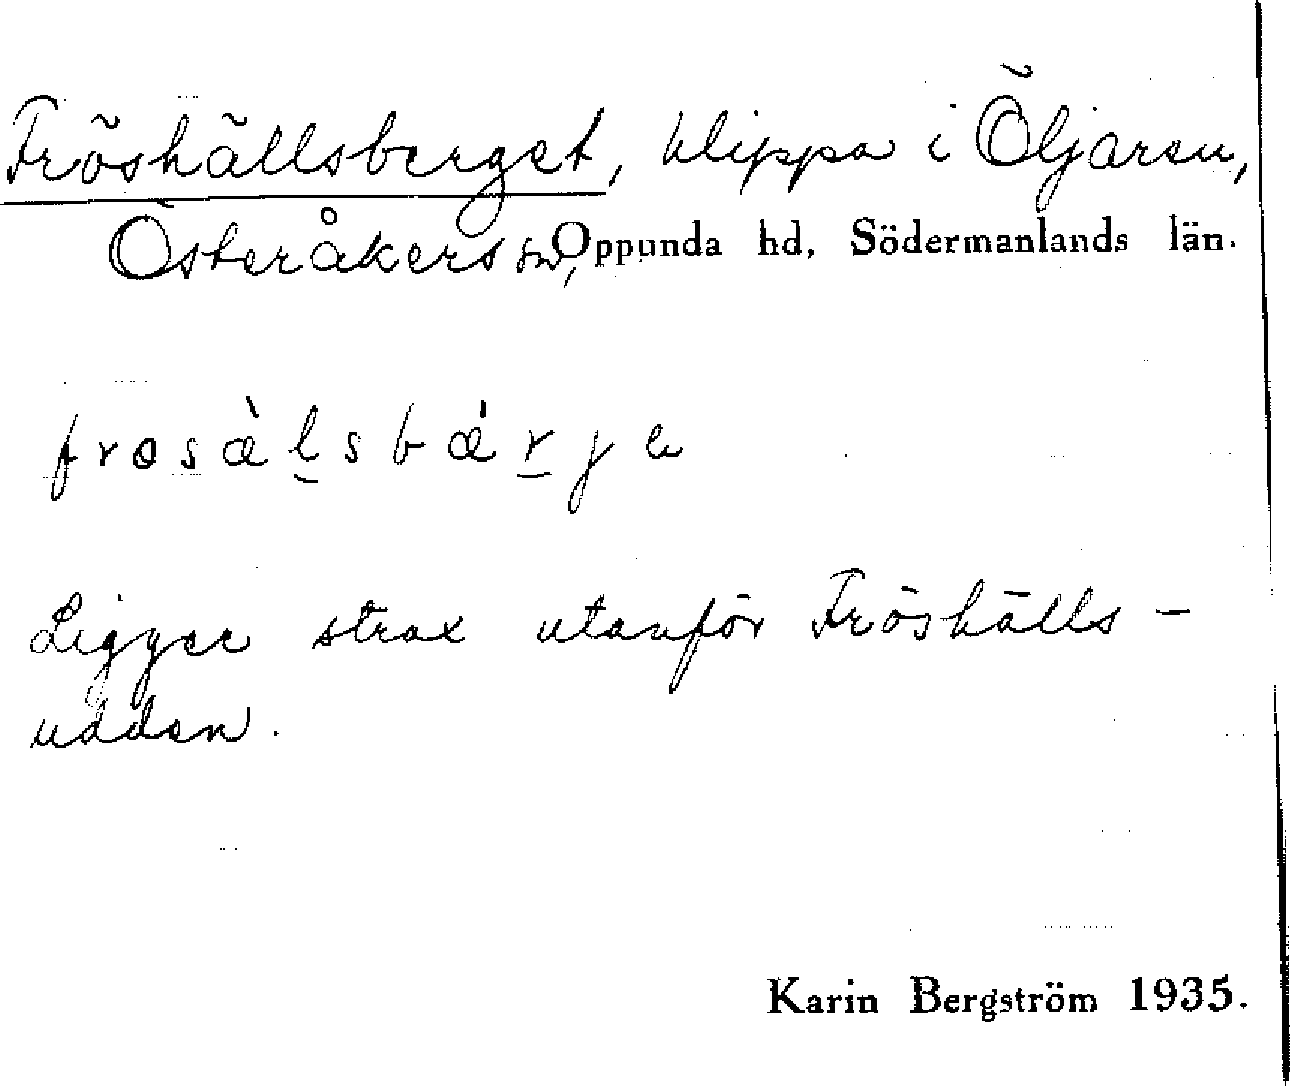 Fröshällsberget, klippa i Öljaren,
Österåkers sn, Oppunda hd, Södermanlands län.
frosæ̀l̠sbǽr̠je
Ligger strax utanför Fröshälls-
udden.
Karin Bergström 1935.